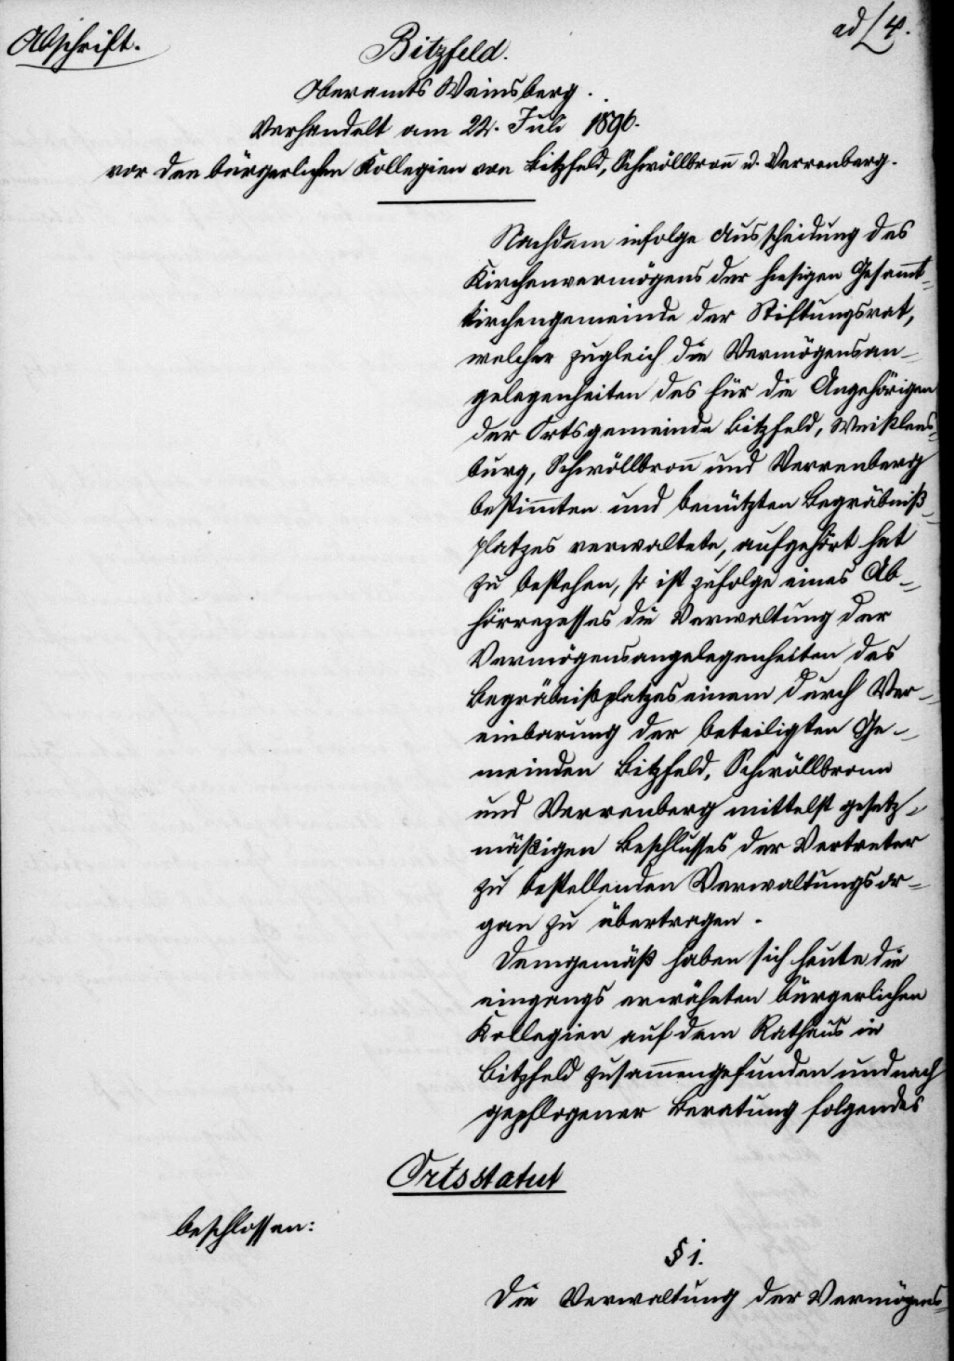 Abschrift.
ad [4.
Bitzfeld.
Oberamts Weinsberg.
Verhandelt am 22. Juli 1896.
vor den bürgerlichen Kollegien von Bitzfeld, Schwöllbronn u. Verrenberg.
Nachdem infolge Ausscheidung des
Kirchenvermögens der hiesigen Gesammt-
kirchengemeinde der Stiftungsrat,
welcher zugleich die Vermögensan-
gelegenheiten des für die Angehörigen
der Ortsgemeinde Bitzfeld, Weißlens-
burg, Schwöllbronn und Verrenberg
bestimmten und benützten Begräbniß-
platzes verwaltete, aufgehört hat
zu bestehen, so ist zufolge eines Ab-
hörrezesses die Verwaltung der
Vermögensangelegenheiten des
Begräbnißplatzes einem durch Ver-
einbarung der beteiligten Ge-
meinden Bitzfeld, Schwöllbronn
und Verrenberg mittelst gesetz-
mäßigen Beschlusses der Vertreter
zu bestellenden Verwaltungsor-
gan zu übertragen.
Demgemäß haben sich heute die
eingangs erwähnten bürgerlichen
Kollegien auf dem Rathaus in
Bitzfeld zusammengefunden und nach
gepflogener Beratung folgendes
Ortsstatut
beschlossen:
§ 1.
Die Verwaltung der Vermögens-